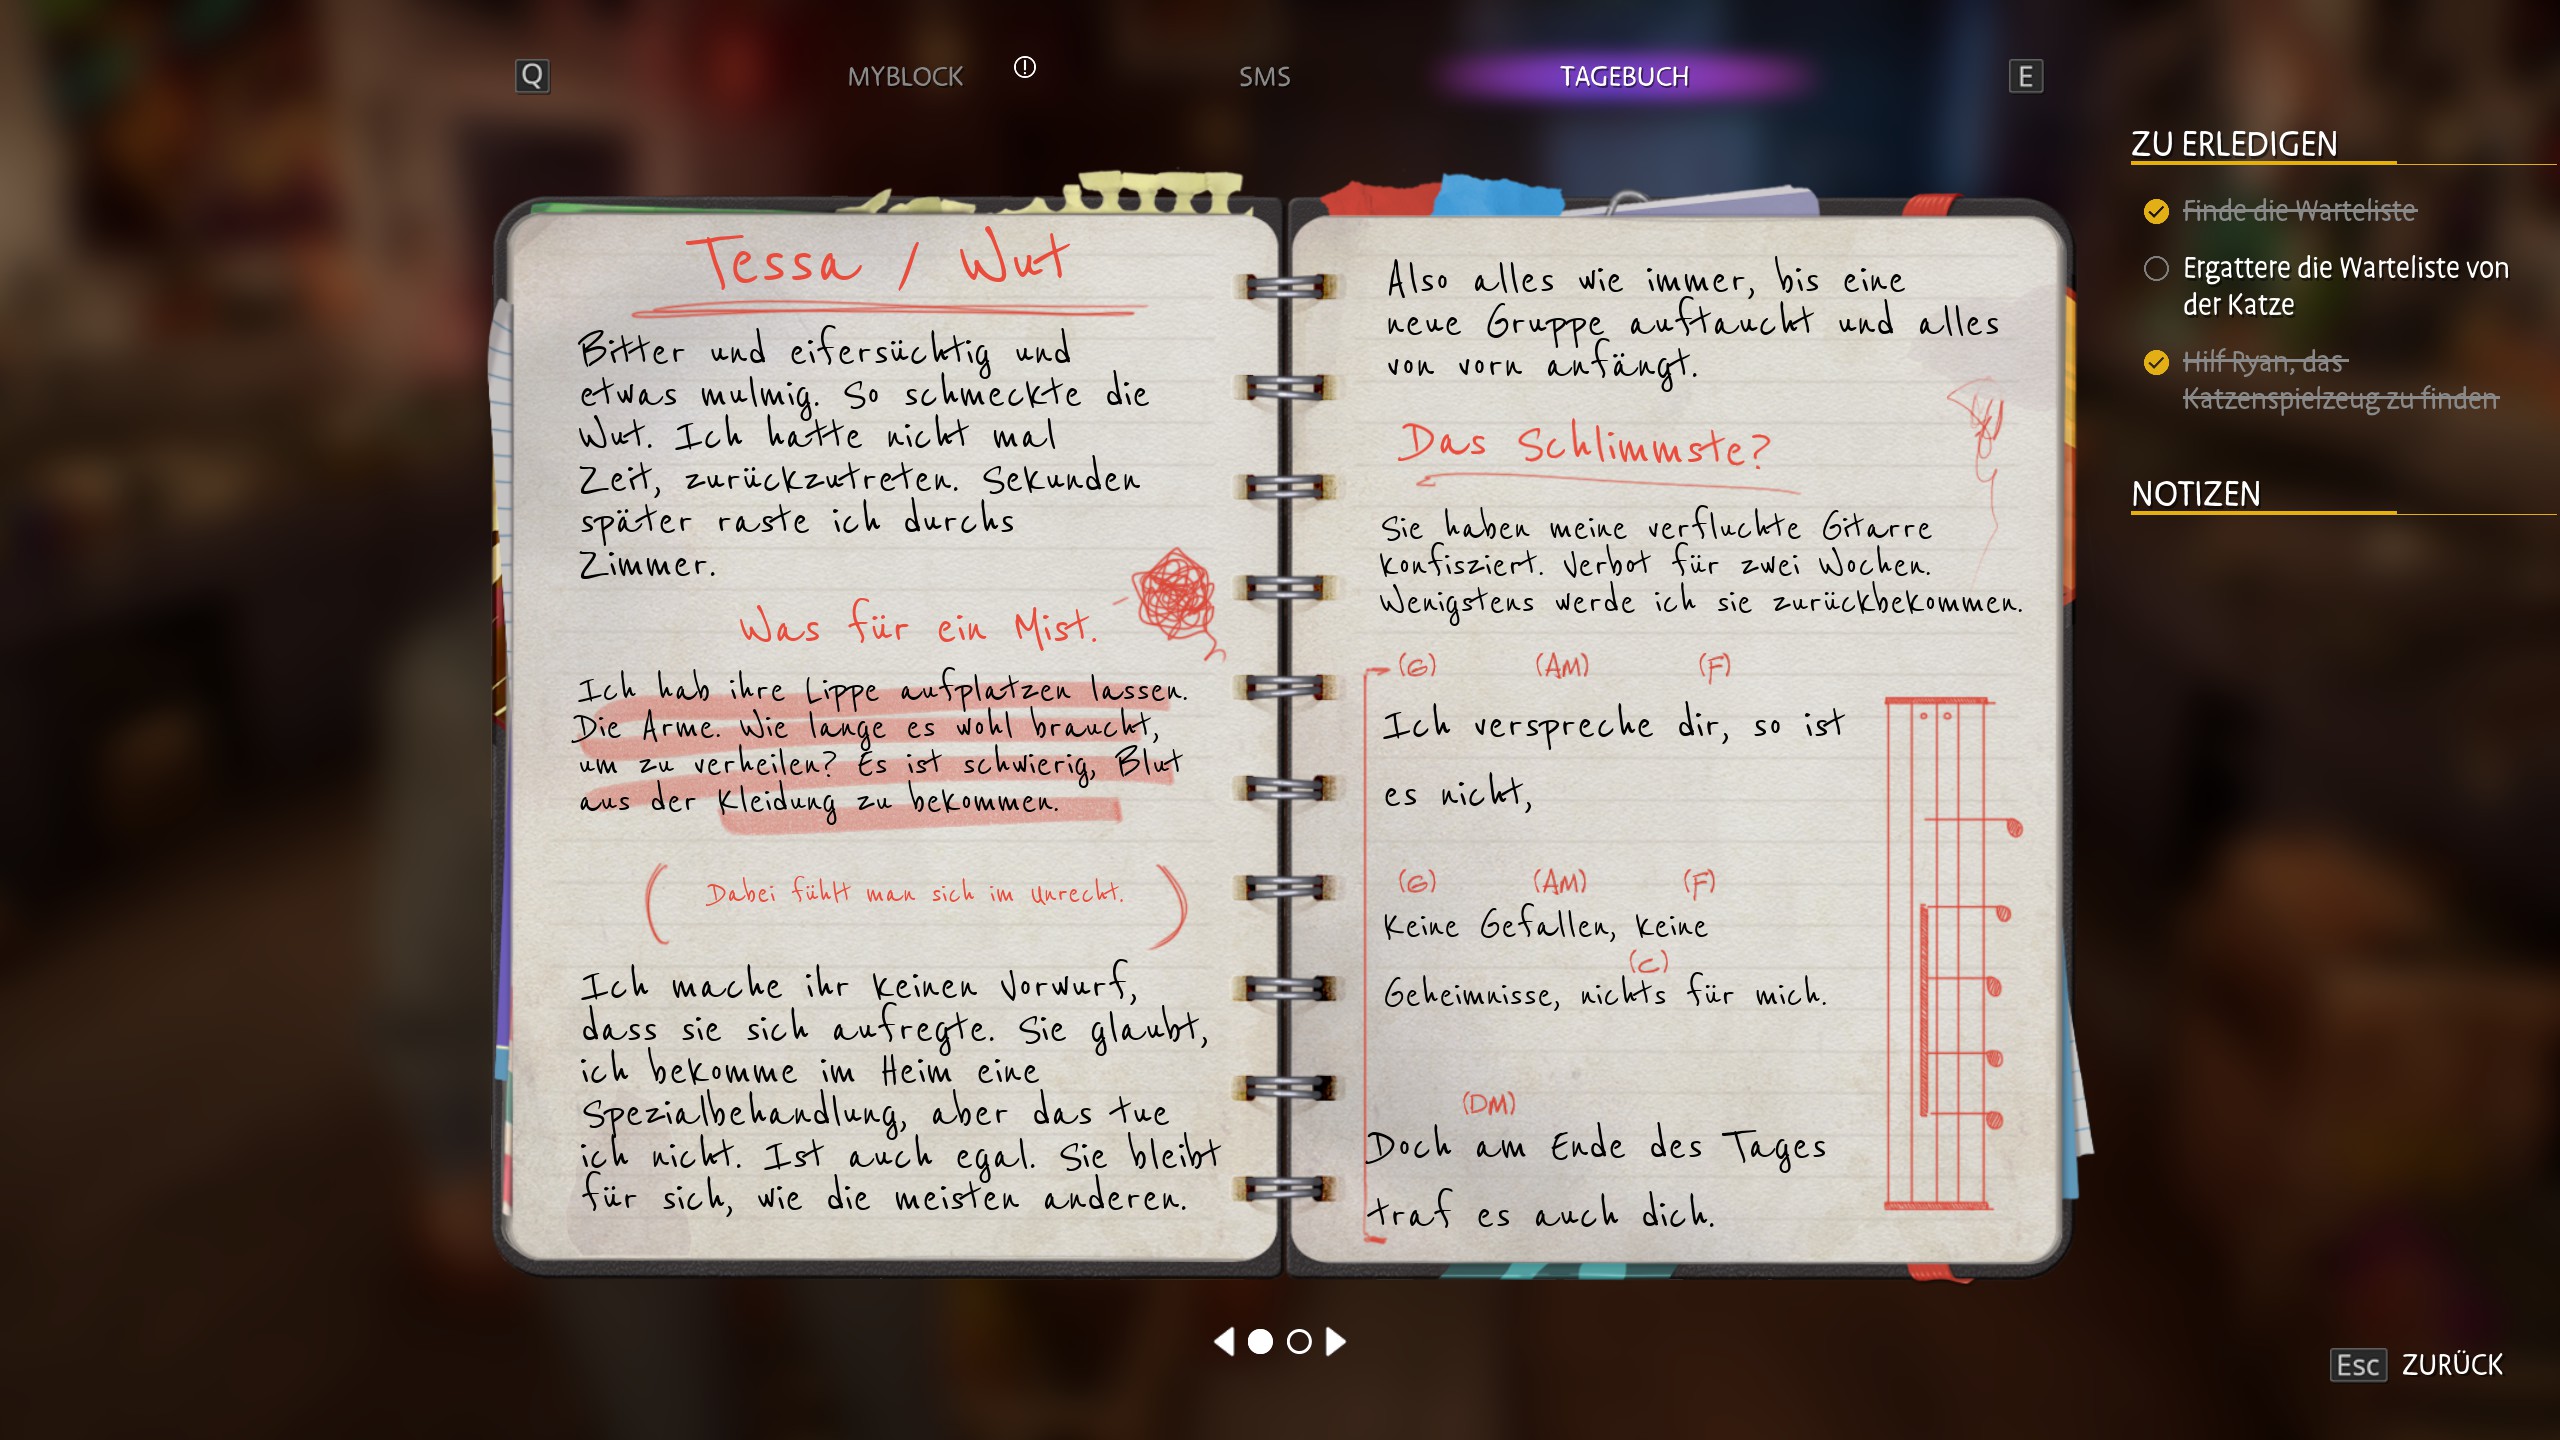 Q
MYBLOCK
!
SMS
TAGEBUCH
E
Tessa / Wut
Bitter und eifersüchtig und
etwas mulmig. So schmeckte die
Wut. Ich hatte nicht mal
Zeit, zurückzutreten. Sekunden
später raste ich durchs
Zimmer.
Was für ein Mist.
Ich hab ihre Lippe aufplatzen lassen.
Die Arme. Wie lange es wohl braucht,
um zu verheilen? Es ist schwierig, Blut
aus der Kleidung zu bekommen.
( Dabei fühlt man sich im Unrecht. )
Ich mache ihr keinen Vorwurf,
dass sie sich aufregte. Sie glaubt,
ich bekomme im Heim eine
Spezialbehandlung, aber das tue
ich nicht. Ist auch egal. Sie bleibt
für sich, wie die meisten anderen.
Also alles wie immer, bis eine
neue Gruppe auftaucht und alles
von vorn anfängt.
Das Schlimmste?
Sie haben meine verfluchte Gitarre
konfisziert. Verbot für zwei Wochen.
Wenigstens werde ich sie zurückbekommen.
(G) (AM) (F)
Ich verspreche dir, so ist
es nicht,
(G) (AM) (F)
Keine Gefallen, keine
(C)
Geheimnisse, nichts für mich.
(DM)
Doch am Ende des Tages
traf es auch dich.
ZU ERLEDIGEN
Finde die Warteliste
Ergattere die Warteliste von
der Katze
Hilf Ryan, das
Katzenspielzeug zu finden
NOTIZEN
Esc ZURÜCK